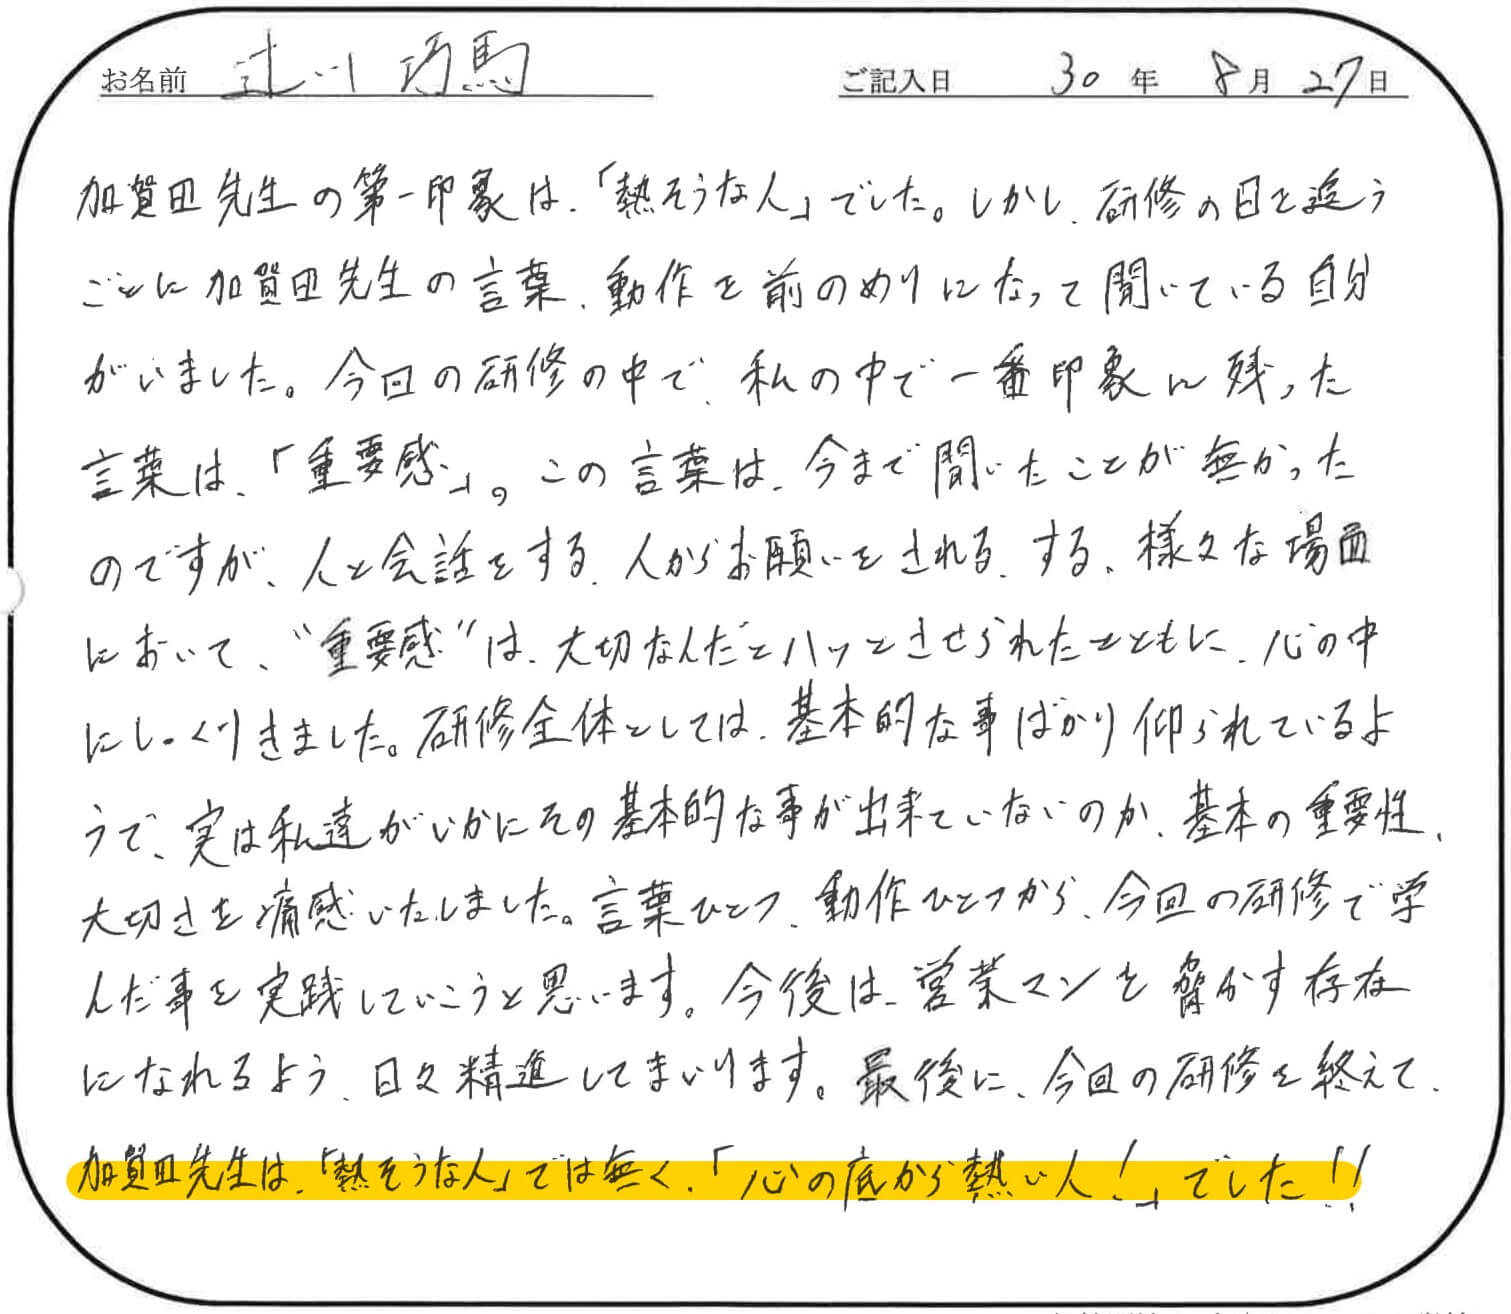 お名前 辻川 巧馬 ご記入日 30年 8月 27日
加賀田先生の第一印象は、「熱そうな人」でした。しかし、研修の日を追う
ごとに加賀田先生の言葉、動作を前のめりになって聞いている自分
がいました。今回の研修の中で、私の中で一番印象に残った
言葉は、「重要感」。この言葉は、今まで聞いたことが無かった
のですが、人と会話をする、人からお願いをされる、する、様々な場面
において、"重要感"は、大切なんだとハッとさせられたとともに、心の中
にしっくりきました。研修全体としては、基本的な事ばかり仰られているよ
うで、実は私達がいかにその基本的な事が出来ていないのか、基本の重要性、
大切さを痛感いたしました。言葉ひとつ、動作ひとつから、今回の研修で学
んだ事を実践していこうと思います。今後は、営業マンを脅かす存在
になれるよう、日々精進してまいります。最後に、今回の研修を終えて、
加賀田先生は、「熱そうな人」では無く、「心の底から熱い人!」でした!!